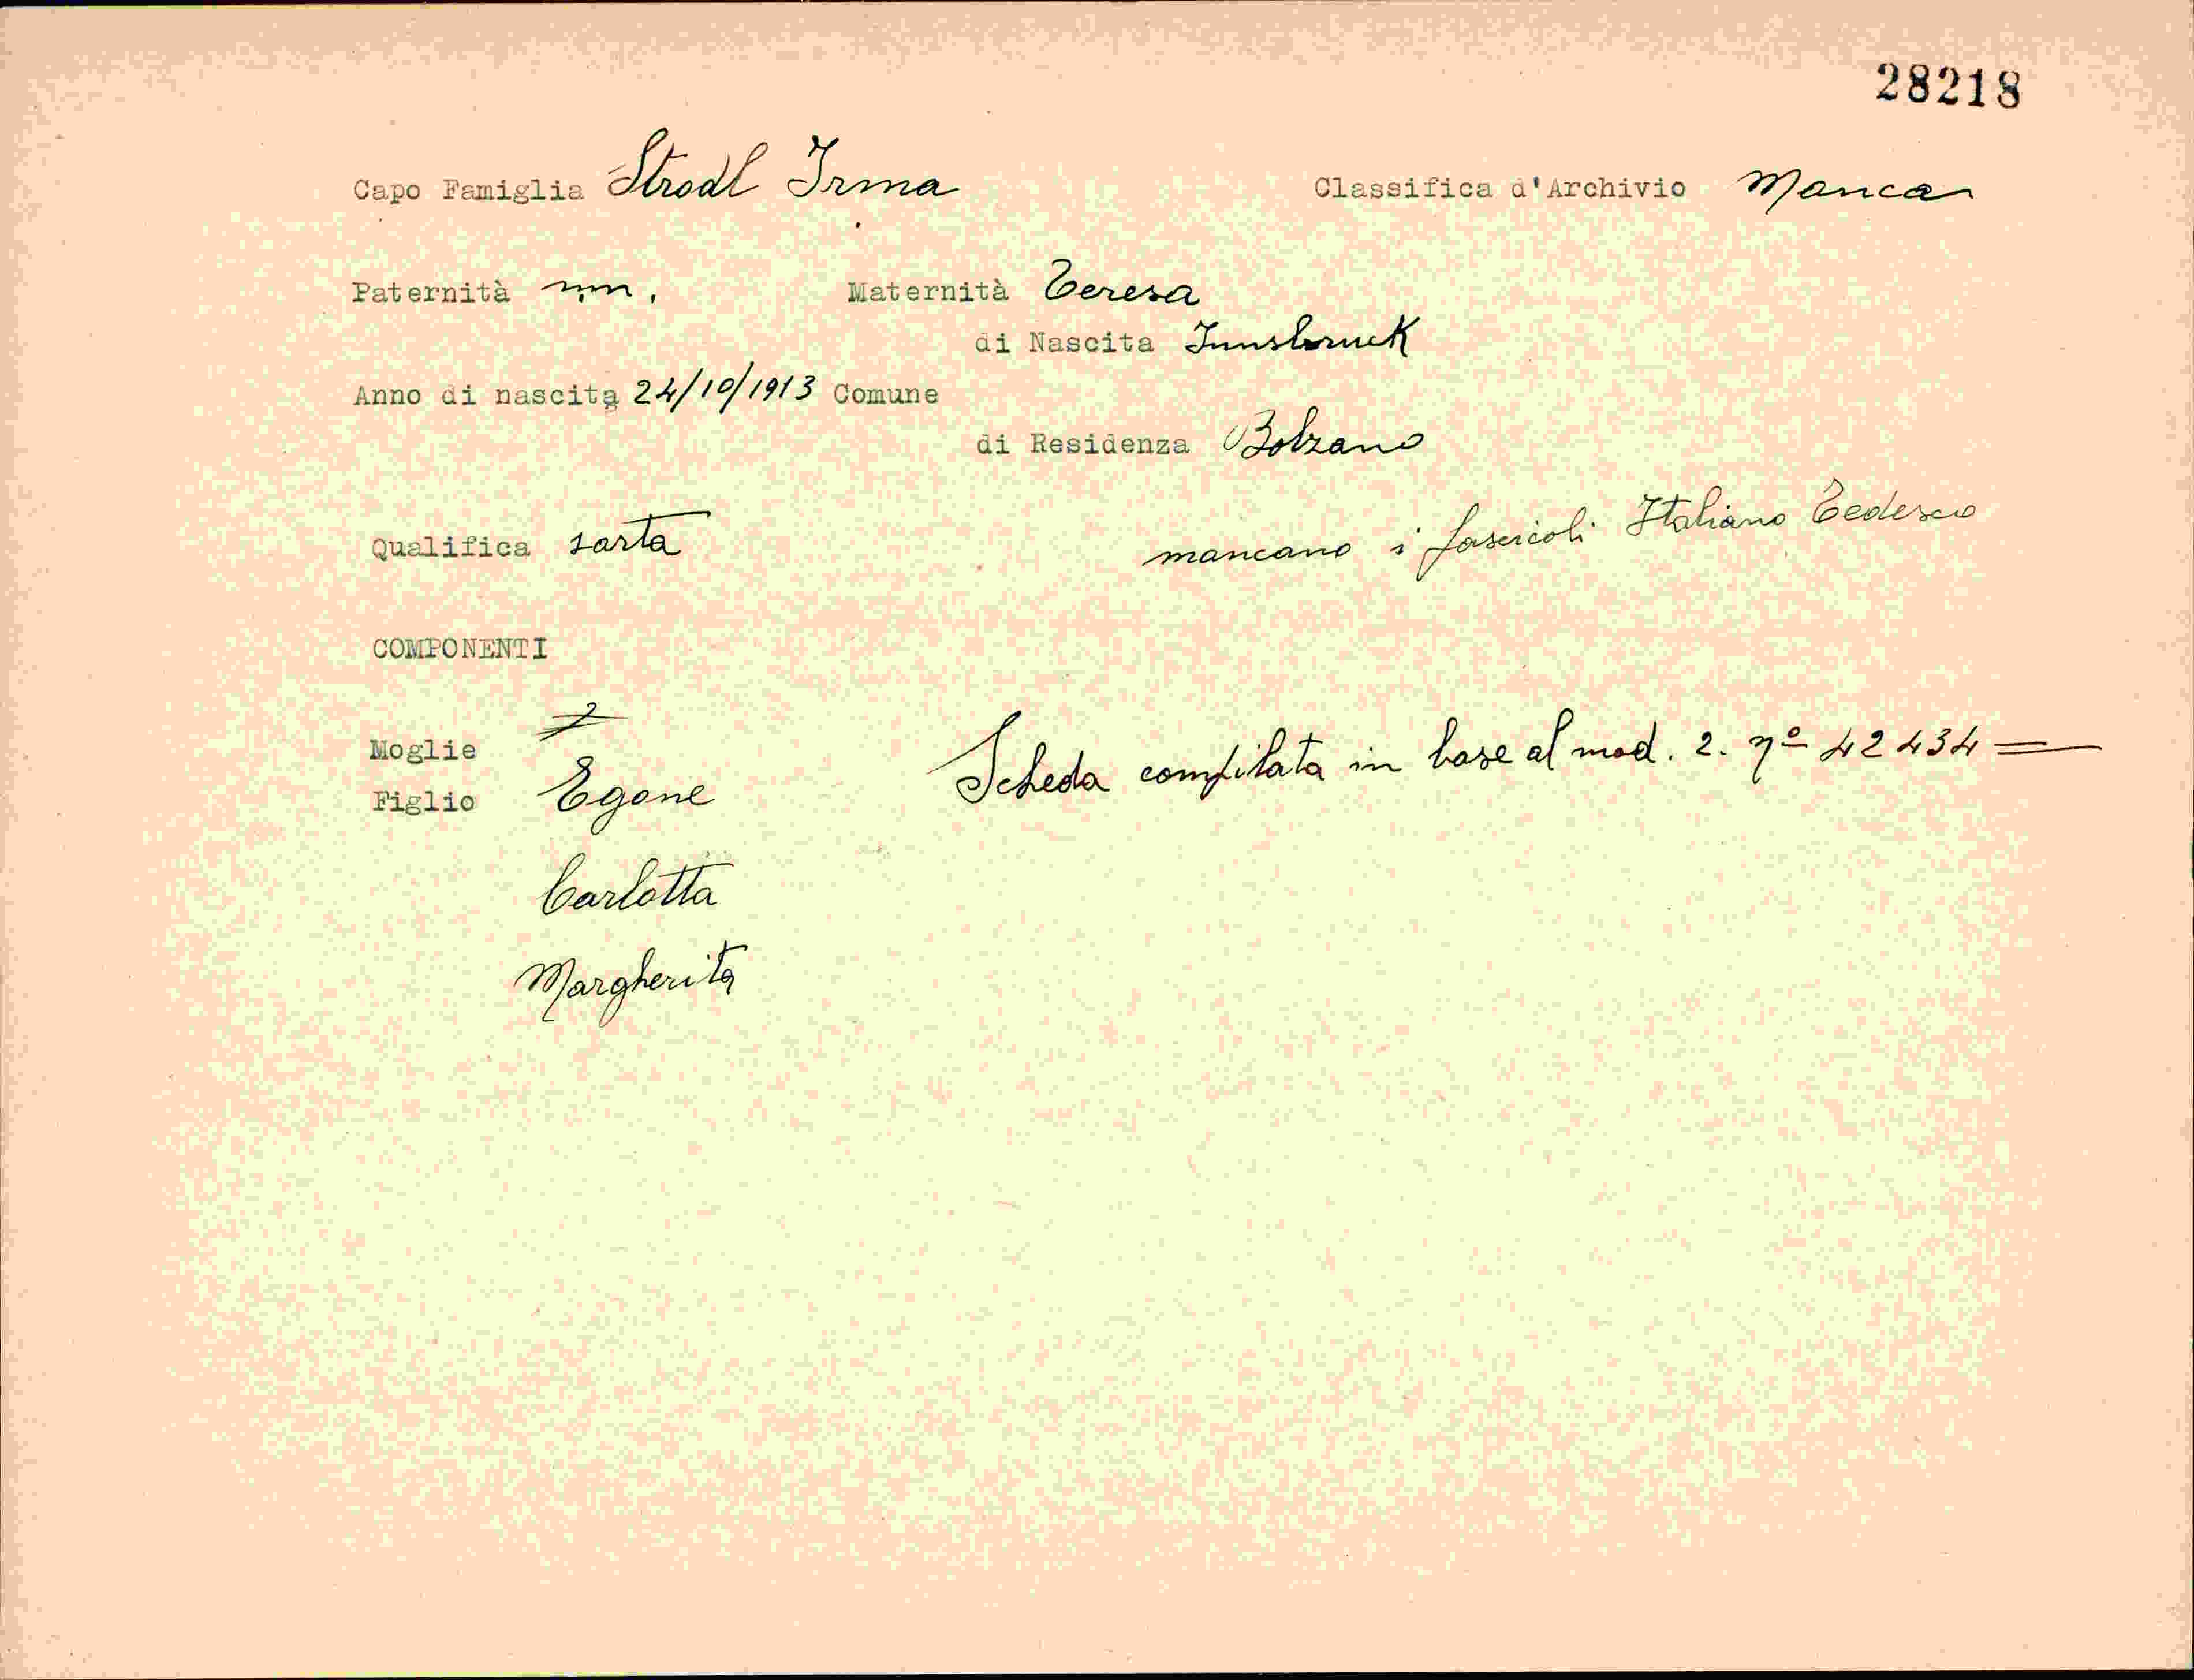 28218
Capo Famiglia Strodl Irma Classifica d'Archivio Manca
Paternità nn. Maternità Teresa
di Nascita Innsbruck
Anno di nascita 24/10/1913 Comune
di Residenza Bolzano
Qualifica sarta mancano i fascicoli Italiano Tedesco
COMPONENTI
Moglie
Scheda compilata in base al mod. 2. nº 42434 =
Figlio Egone
Carlotta
Margherita